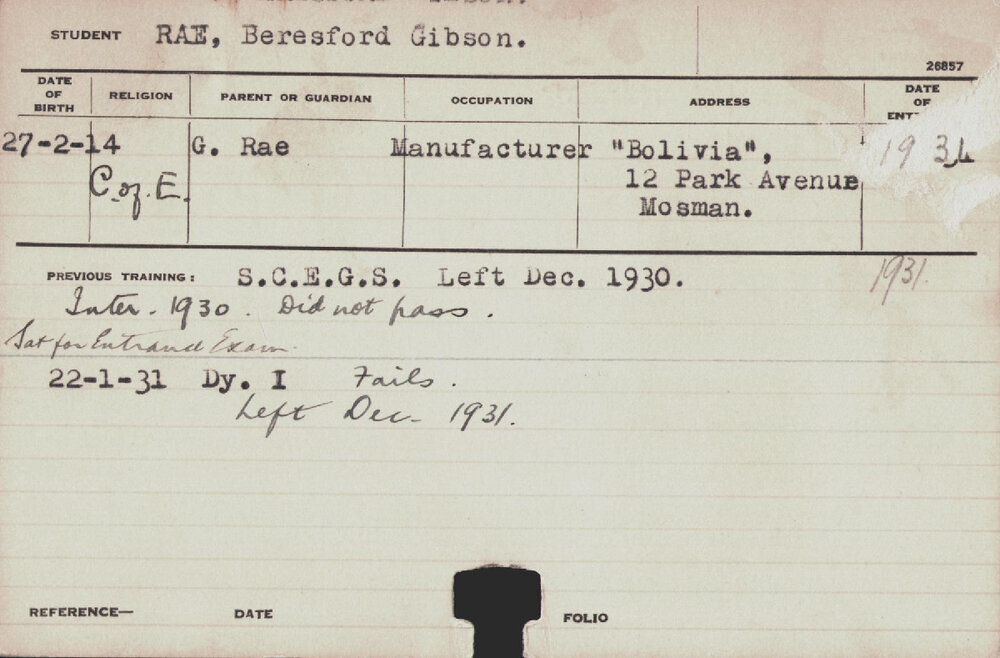 STUDENT RAE, Beresford Gibson.
26857
DATE OF BIRTH RELIGION PARENT OR GUARDIAN OCCUPATION ADDRESS DATE OF
27-2-14 G. Rae Manufacturer "Bolivia",
C. of. E. 12 Park Avenue
Mosman.
PREVIOUS TRAINING: S.C.E.G.S. Left Dec. 1930. 1931.
Inter. 1930. Did not pass.
Sat for Entrance Exam.
22-1-31 Dy. I Fails.
Left Dec. 1931.
REFERENCE— DATE FOLIO